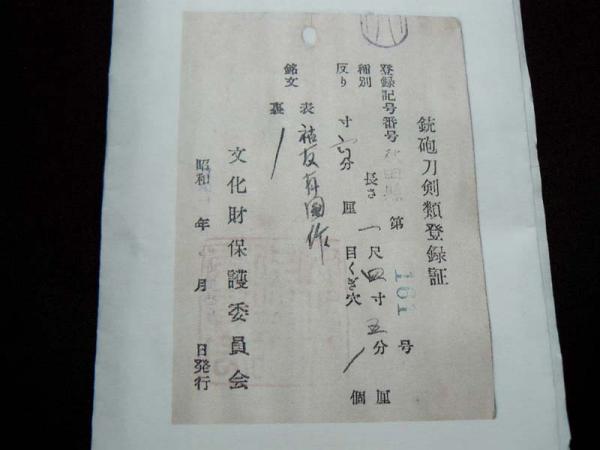 銃砲刀剣類登録証
登録記号番号 秋田縣 第 161 号
種別 長さ 一尺四寸五分 厘
反り 寸 六分 厘 目くぎ穴 1 個
銘文 表 祐友兵国作
裏 /
文化財保護委員会
昭和 年 月 日発行